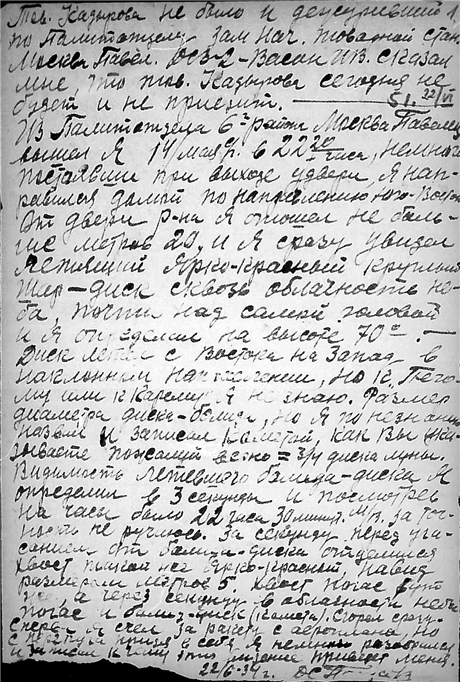 Тов. Кадырова не было и
по Политотделу зам нач. товарной стан.
Москва Павел. сказал
мне что тов. Кадырова сегодня не
будет и не приедет. 22/VI
Из Политотдела 6го района Москва Павелец
вышел я 14 мая в 22 часа, немного
постоявши при выходе у двери, я нап-
равился домой по направлению Юго-Восток
От двери р-на я отошел не боль-
ше метров 20, и я сразу увидел
летящий ярко-красный круглый
шар-диск сквозь облачность не-
ба, почти над самой головой
и я определил на высоте 70°. —
Диск летел с Востока на Запад в
наклонном направлении, но к
или к я не знаю. Размер
диаметра диска-болида, но я по незнанию
назвал и записал кометой, как Вы ука-
зываете пожалуй = 3/4 диска луны.
Видимость летевшего болида-диска я
определил в 3 секунды и посмотрев
на часы было 22 часа 30 минут. М/в. за точ-
ность не ручаюсь. За секунду перед уга-
санием от болида-диска отделился
хвост такой же ярко-красный, на вид
размером метров 5 хвост погас
а через секунду в облачности неба
погас и болид-диск (комета).
я счел за ракету с аероплана, но
я немного разобрался
и записал
22/6-34 г.